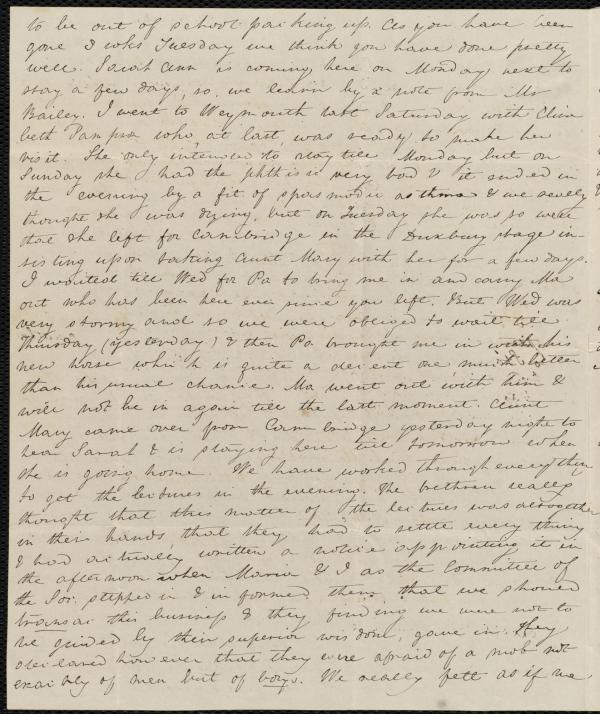 to be out of school packing up. As you have been
gone 3 wks Tuesday we think you have done pretty
well. Sarah Ann is coming here on Monday next to
stay a few days, so we learn by a note from Mr
Bailey. I went to Weymouth last Saturday with Eliza
beth who, at last, was ready to make her
visit. She only intended to stay till Monday but on
Sunday she had the phthisic very bad & it ended in
the evening by a fit of spasmodic asthma & we really
thought she was dying, but on Tuesday she was so well
that she left for Cambridge in the Duxbury stage in-
sisting upon taking Aunt Mary with her for a few days.
I waited till Wed for Pa to bring me in and carry Ma
out who has been here ever since you left. But Wed was
very stormy and so we were obliged to wait till
Thursday (yesterday) & then Pa brought me in with his
new horse which is quite a decent one, much better
than his usual chance. Ma went out with him &
will not be in again till the last moment. Aunt
Mary came over from Cambridge yesterday night to
hear Sarah & is staying here till tomorrow when
she is going home. We have worked through everything
to get the lectures in the evening. The brethren really
thought that this matter of the lectures was altogether
in their hands, that they had to settle every thing
& had actually written a notice appointing it in
the afternoon when Maria & I as the Committee of
the Soc. stepped in & informed them that we should
transac this business & they finding we were not to
be guided by their superior wisdom, gave in. They
declared however that they were afraid of a mob not
exactly of men but of boys. We really felt as if we